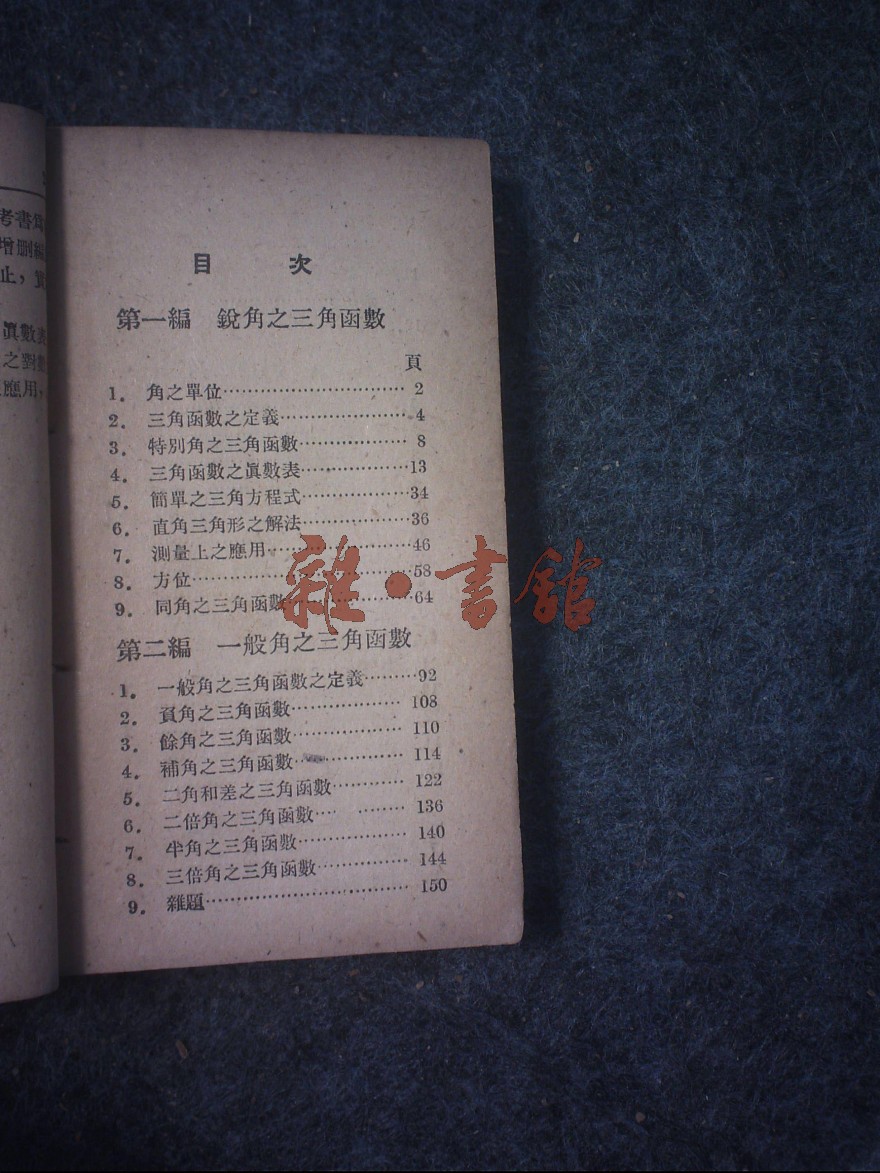 考書
增刪編
止，
眞數表
之對數
應用，
目　次
第一編　銳角之三角函數
頁
1. 角之單位…………………………2
2. 三角函數之定義…………………4
3. 特別角之三角函數………………8
4. 三角函數之眞數表………………13
5. 簡單之三角方程式………………34
6. 直角三角形之解法………………36
7. 測量上之應用……………………46
8. 方位………………………………58
9. 同角之三角函數…………………64
第二編　一般角之三角函數
1. 一般角之三角函數之定義………92
2. 負角之三角函數………………108
3. 餘角之三角函數………………110
4. 補角之三角函數………………114
5. 二角和差之三角函數…………122
6. 二倍角之三角函數…… ………136
7. 半角之三角函數………………140
8. 三倍角之三角函數……………144
9. 雜題……………………………150
雜·書館